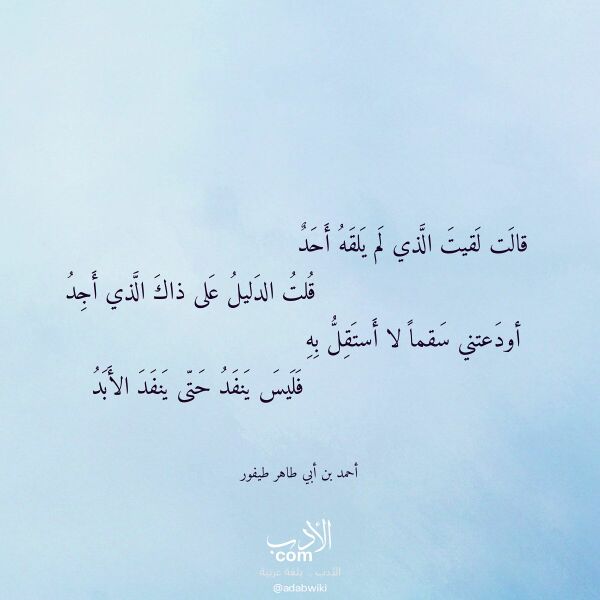 قالَت لَقيتَ الَّذي لَم يَلقَهُ أَحَدٌ
قُلتُ الدَليلُ عَلى ذاكَ الَّذي أَجِدُ
أودَعتني سَقماً لا أَستَقِلُّ بِهِ
فَلَيسَ يَنفَدُ حَتّى يَنفَدَ الأَبَدُ
أحمد بن أبي طاهر طيفور
الأدب
com
الأدب .. بلغة عربية
@adabwiki